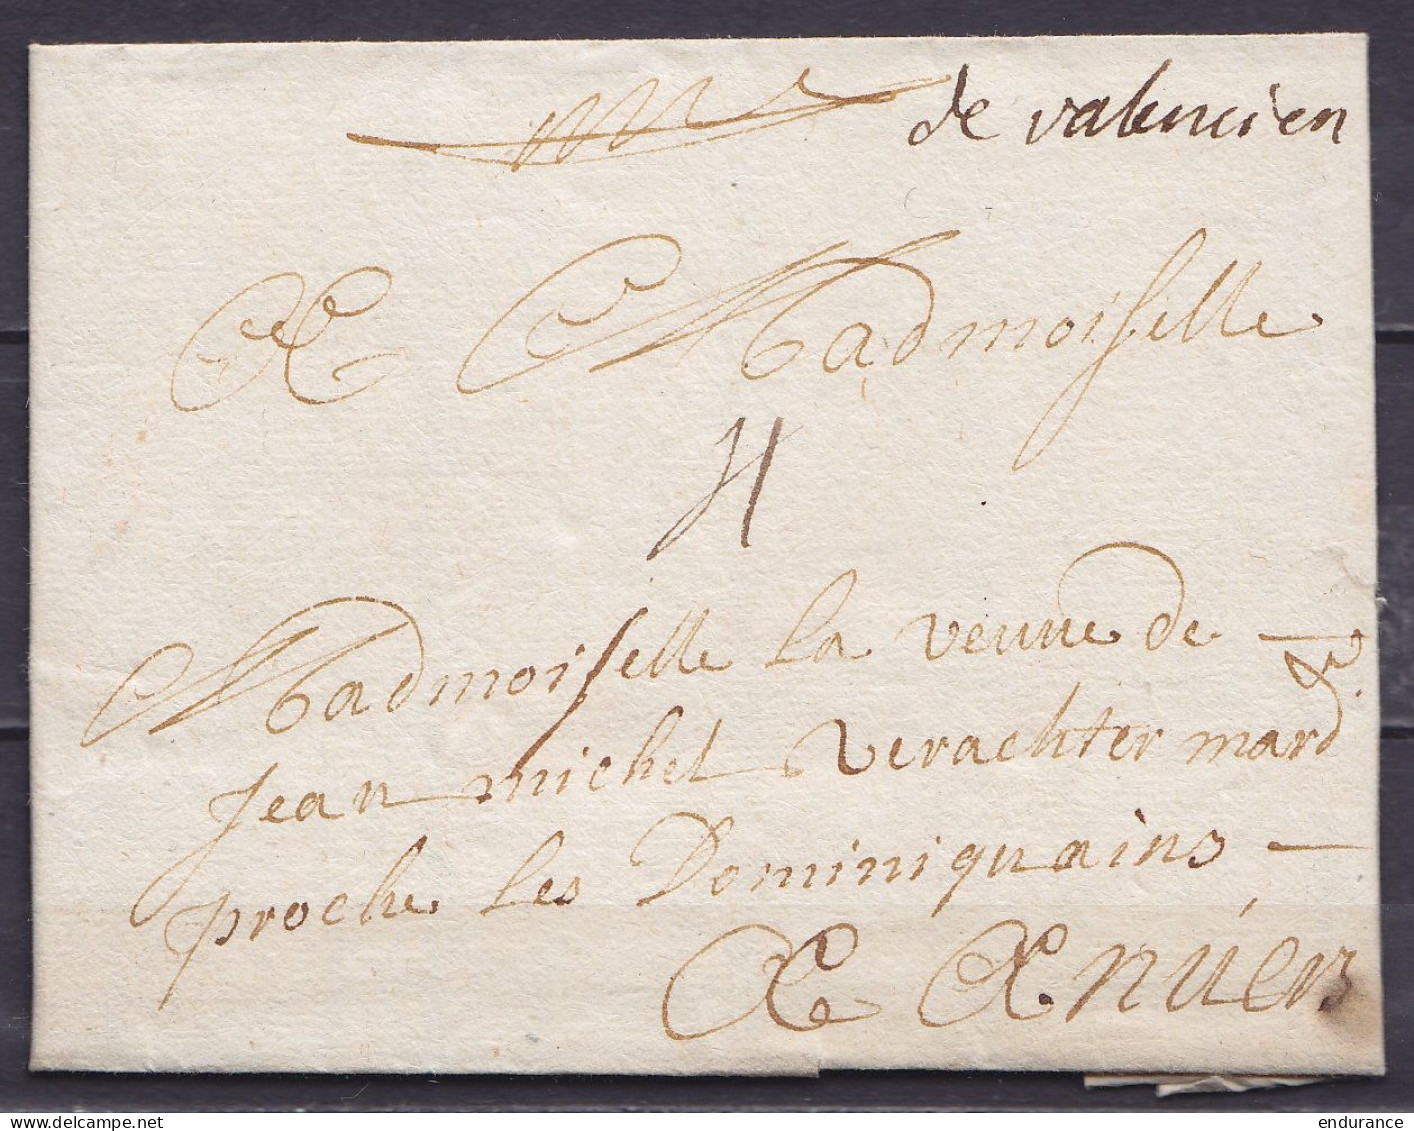 de valencien
A Madmoiselle
4
Madmoiselle la veuue de
Jean michel verachter mard
proche les Dominiquains
A Anuers
endurance